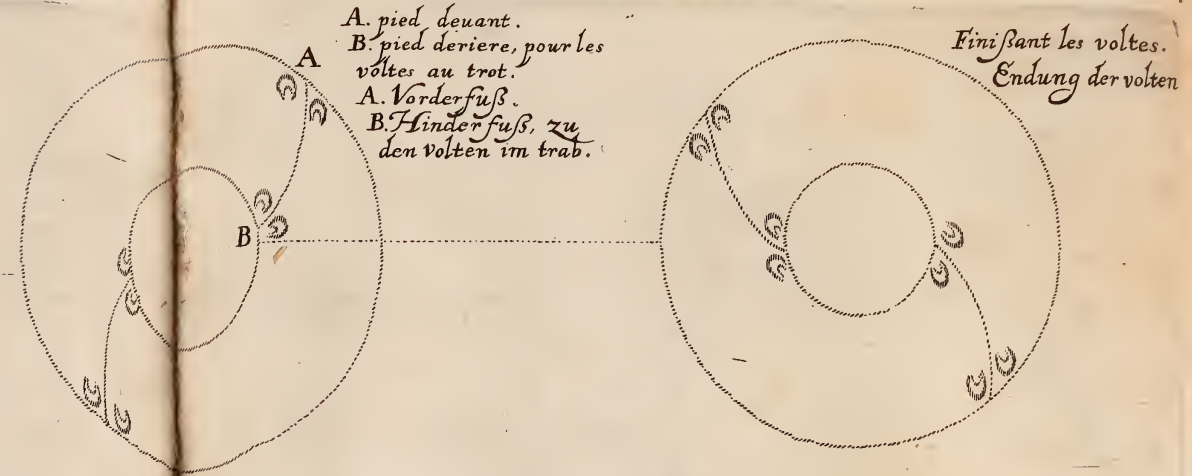 A. pied deuant.
B. pied deriere, pour les
voltes au trot.
A. Vorderfuß.
B. Hinder fuß, zu
den Volten im trab.
A
B
Finißant les voltes.
Endung der volten